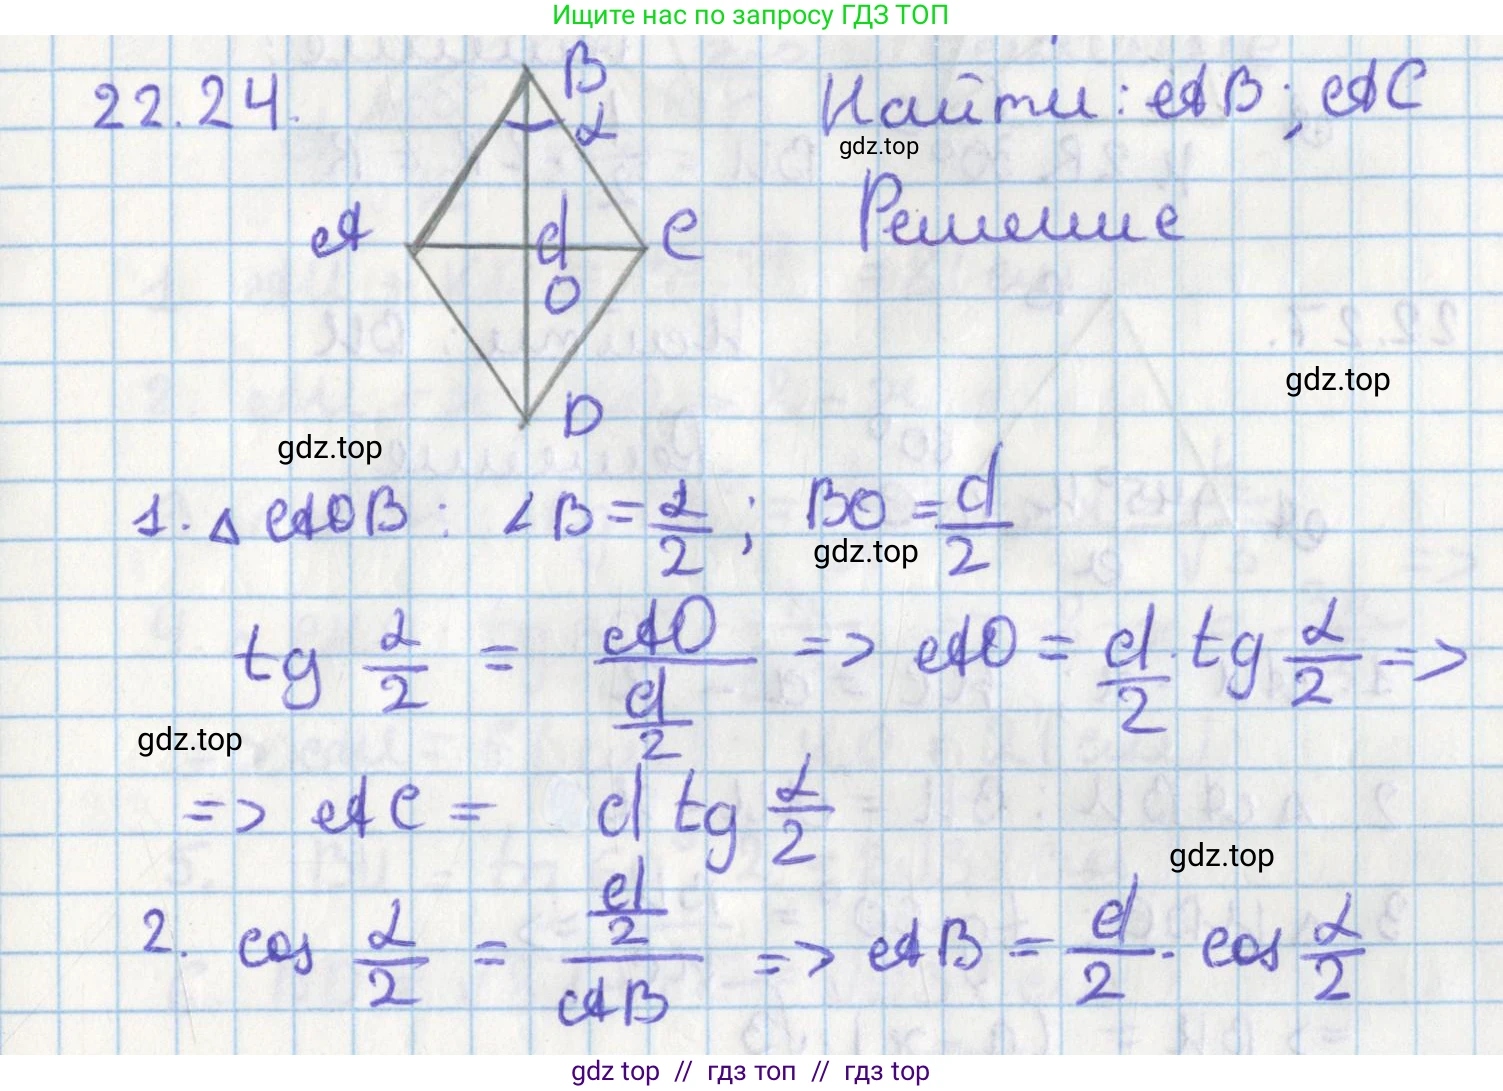 Ищите нас по запросу ГДЗ ТОП
22.24.
B
α
A
d
C
O
D
Найти: AB; AC
gdz.top
Решение
gdz.top
gdz.top
1. Δ AOB: ∠B = α/2; BO = d/2
gdz.top
tg α/2 = AO/(d/2) => AO = d/2 · tg α/2 =>
gdz.top
=> AC = d tg α/2
gdz.top
2. cos α/2 = (d/2)/AB => AB = d/2 · cos α/2
gdz top // гдз топ // гдз top